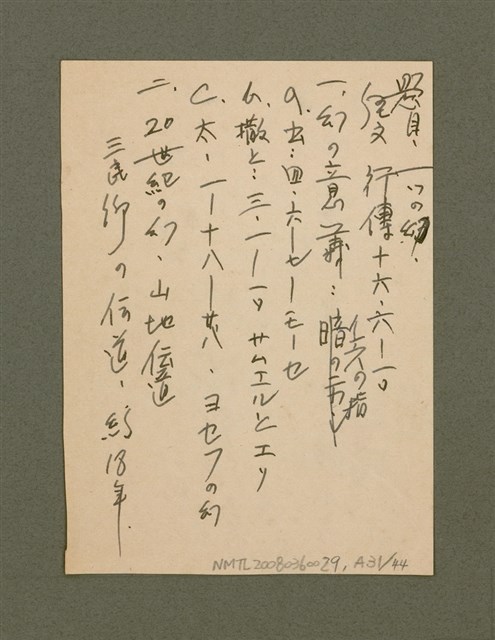 題目、一つの幻、
経文 行傳十六・六一一〇
一、幻の意義：暗の示し
の指
a、出：四・六ーセーモーセ
b、撒上：三・一ー一〇 サムエルとエリ
C、太・一ー十八ー廿八、ヨセフの幻
二、20世紀の幻、山地伝道
三民郷の伝道、約18年、
NMTL20080360029, A31/44